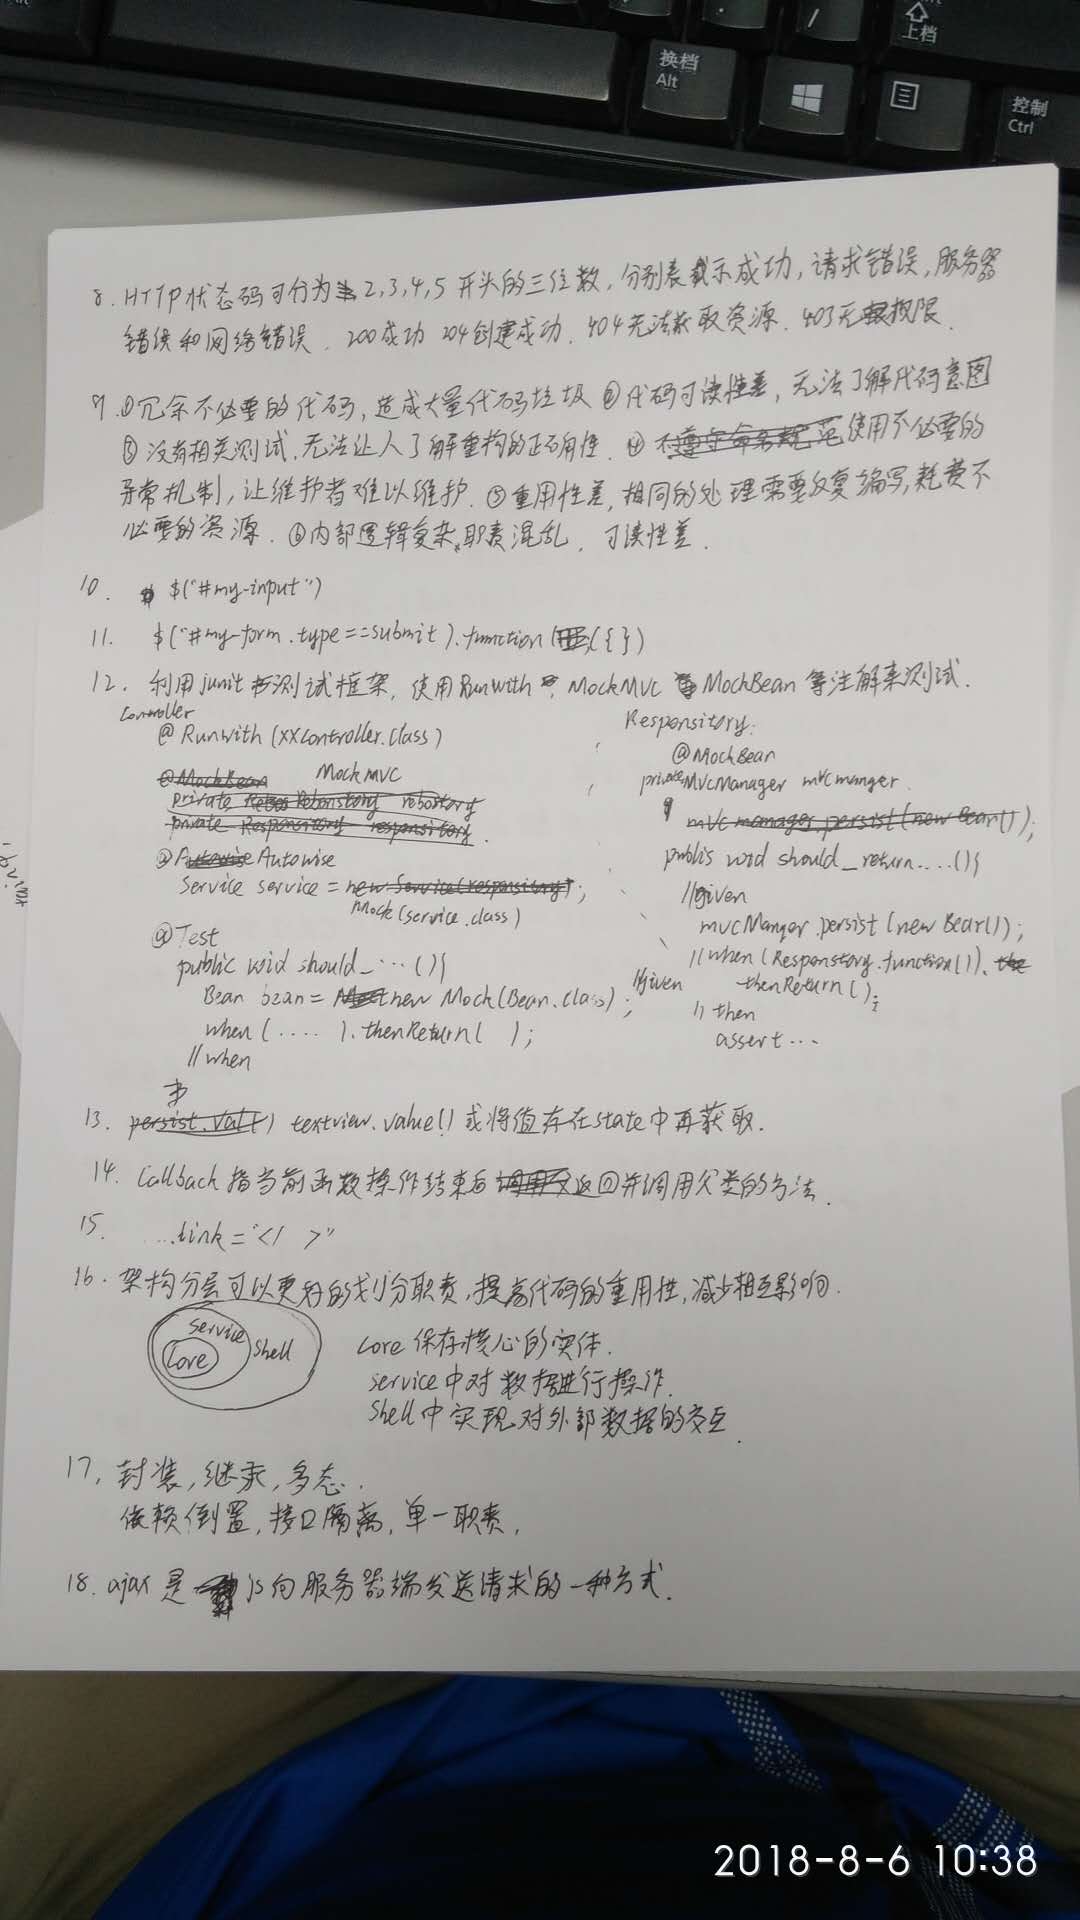 换档
Alt
上档
控制
Ctrl
8. HTTP状态码可分为 2,3,4,5 开头的三位数, 分别表示成功, 请求错误, 服务器
错误和网络错误. 200成功 204创建成功. 404无法获取资源. 403无权限.
9. ①冗余不必要的代码, 造成大量代码垃圾 ②代码可读性差, 无法了解代码意图
③没有相关测试, 无法让人了解重构的正确性. ④ 不遵守命名规范 使用不必要的
异常机制, 让维护者难以维护. ⑤重用性差, 相同的处理需要反复编写, 耗费不
必要的资源. ⑥内部逻辑复杂, 职责混乱, 可读性差.
10. $("#my-input")
11. $("#my-form.type==submit).function(({})
12. 利用junit 测试框架, 使用RunWith, MockMVC MockBean 等注解来测试.
Controller
@RunWith(XXController.class)
@MockBean MockMVC
private Rebonstory rebostory
private Responsitory responsitory.
@Autowise
Service service = new Service(responsitory);
Mock(service.class)
@Test
public void should_...(){
Bean bean = new Mock(Bean.class); //given
when(....).thenReturn( );
//when
Responsitory:
@MockBean
private MvcManager mvcmanger
mvc manager.persist(new Bean());
public void should_return....(){
//given
mvcManger.persist(new Bean());
//when(Responstory.function()).
thenReturn();
//then
assert...
13. persist.val() textview.value() 或将值存在state中再获取.
14. Callback 指当前函数操作结束后 返回并调用父类的方法.
15. ....link="</ >"
16. 架构分层可以更好的划分职责, 提高代码的重用性, 减少相互影响.
Service
Core
Shell
Core 保存核心的实体.
service中对数据进行操作.
Shell中实现对外部数据的交互.
17. 封装, 继承, 多态.
依赖倒置, 接口隔离, 单一职责,
18. ajax 是 js向服务器端发送请求的一种方式.
2018-8-6 10:38